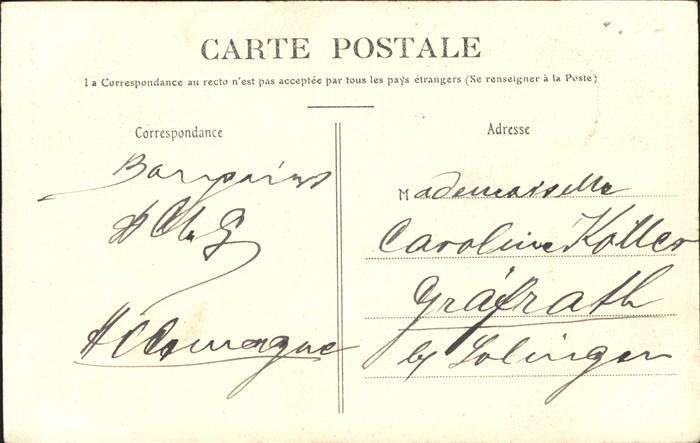 CARTE POSTALE
La Correspondance au recto n'est pas acceptée par tous les pays étrangers (Se renseigner à la Poste)
Correspondance
Adresse
Mademoiselle
Caroline Koller
Gräfrath
by Solingen
Allemagne